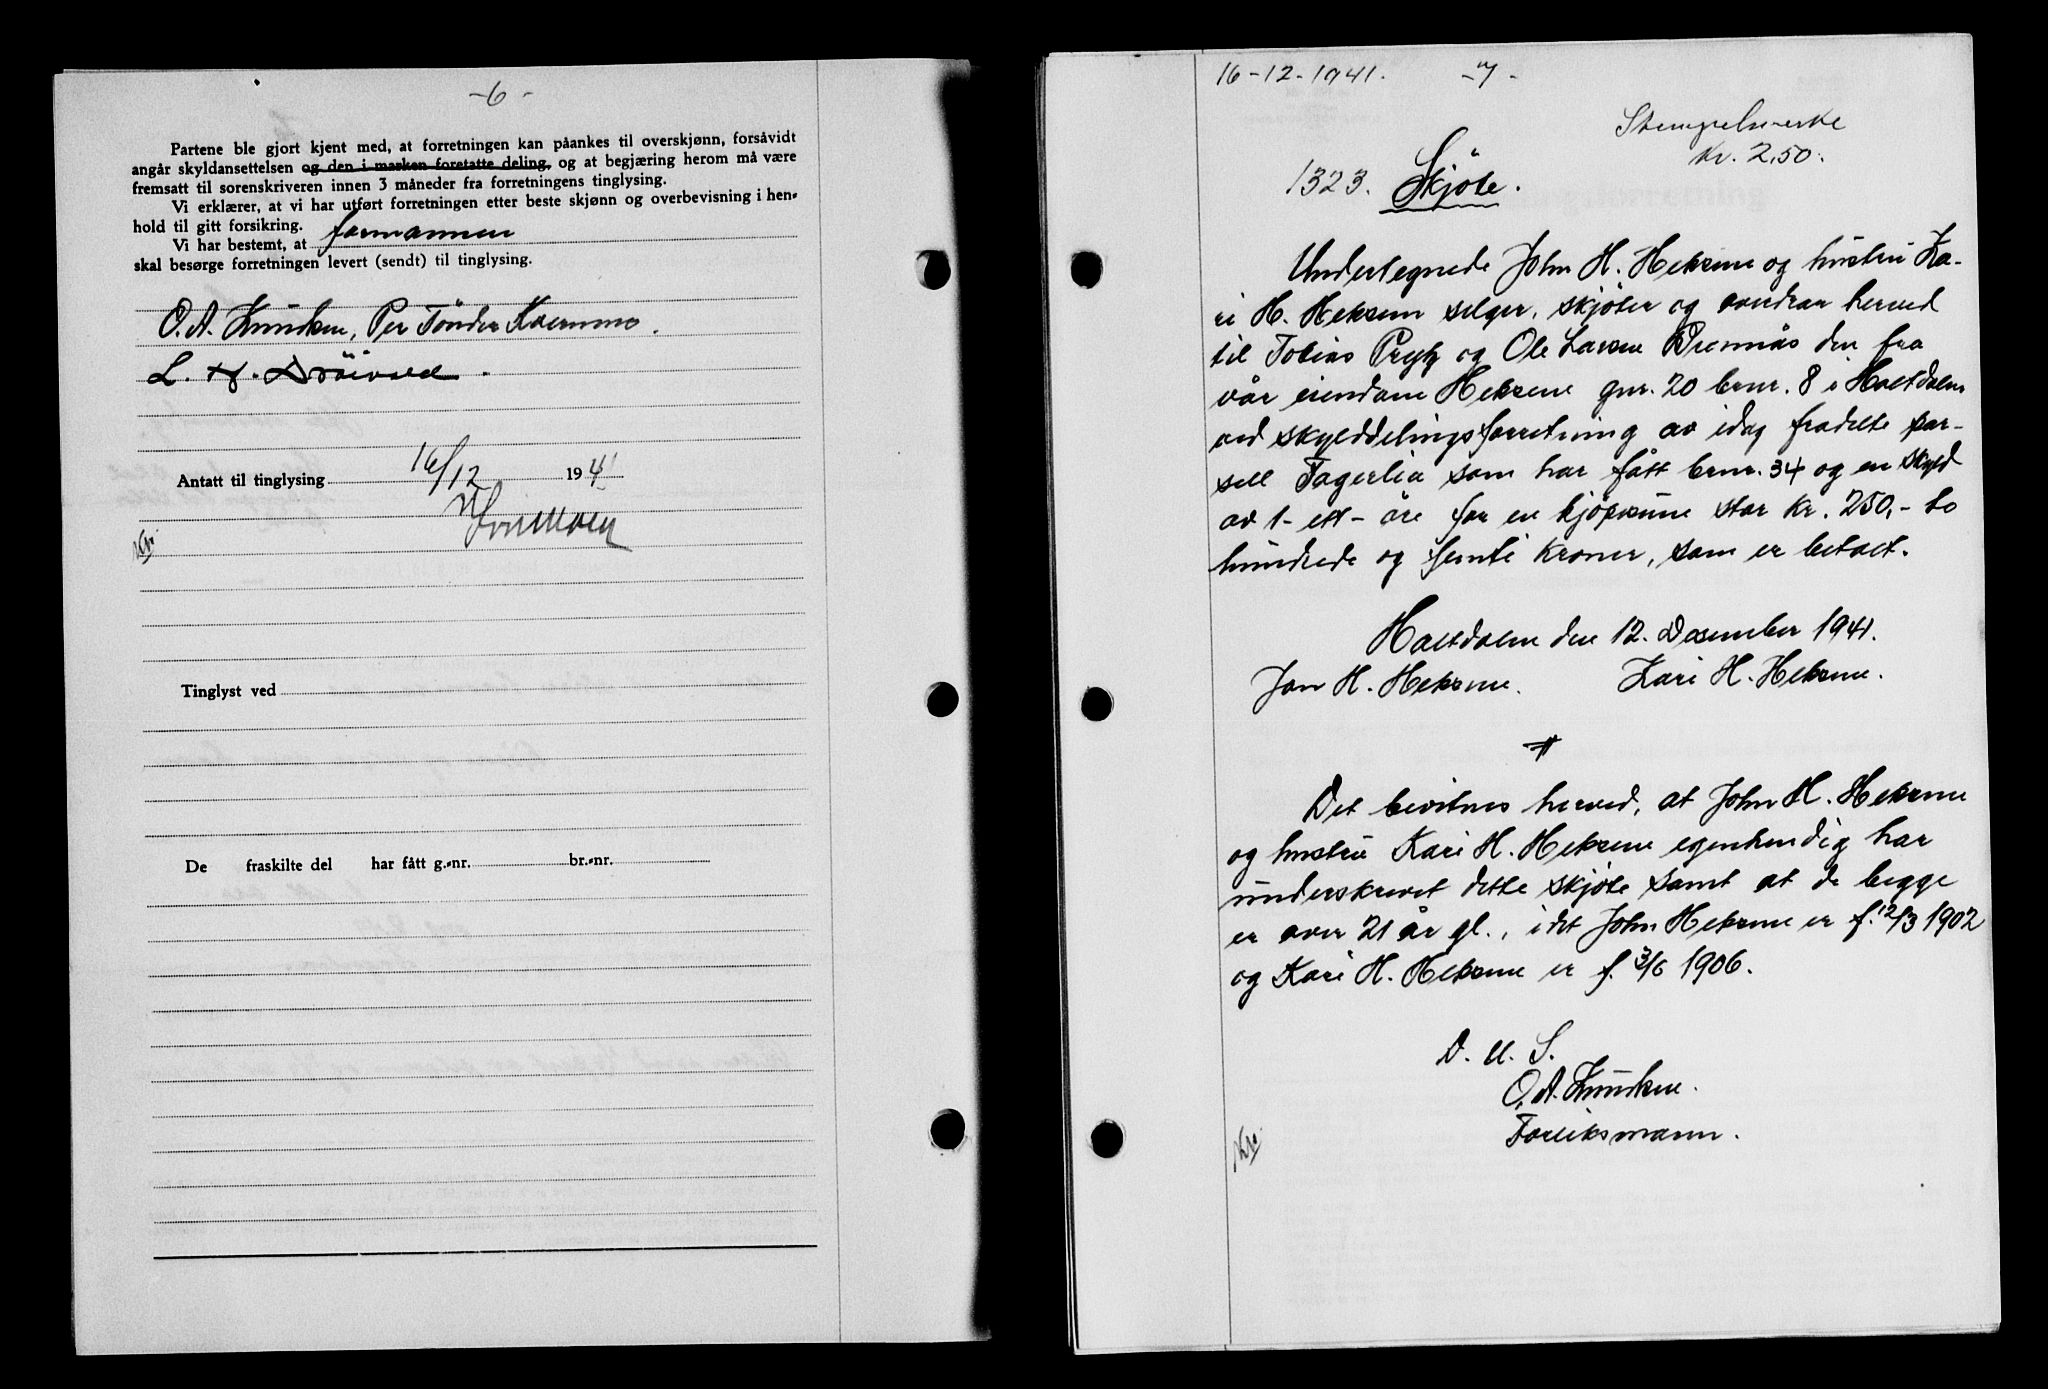 -6-
Partene ble gjort kjent med, at forretningen kan påankes til overskjønn, forsåvidt
angår skyldansettelsen og den i marken foretatte deling, og at begjæring herom må være
fremsatt til sorenskriveren innen 3 måneder fra forretningens tinglysing.
Vi erklærer, at vi har utført forretningen etter beste skjønn og overbevisning i hen-
hold til gitt forsikring.
Vi har bestemt, at formannen
skal besørge forretningen levert (sendt) til tinglysing.
O. A. Knudsen, Per Tönder Kvernmo.
L. H. Dröivold.
Antatt til tinglysing 16/12 1941
Tinglyst ved
De fraskilte del har fått g.-nr. br.-nr.
16-12-1941. -7-
Stempelmerke
Kr. 2,50.
1323. Skjöte.
Undertegnede John H. Heksem og hustru Ka-
ri H. Heksem selger, skjöter og overdrar herved
til Tobias Prytz og Ole Larsen Drennås den fra
vår eiendom Heksem gnr. 20 brnr. 8 i Haltdalen
ved skylddelingsforretning av idag fradelte par-
sell Fagerlia som har fått brnr. 34 og en skyld
av 1- ett - öre for en kjöpesum stor kr. 250,- to
hundrede og femti kroner, som er betalt.
Haltdalen den 12. Desember 1941.
Jon H. Heksem. Kari H. Heksem.
Det bevitnes herved, at John H. Heksem
og hustru Kari H. Heksem egenhendig har
underskrevet dette skjöte samt at de begge
er over 21 år gl., idet John Heksem er f. 12/3 1902
og Kari H. Heksem er f. 3/6 1906.
D. U. S.
O. A. Knudsen.
Forliksmann.